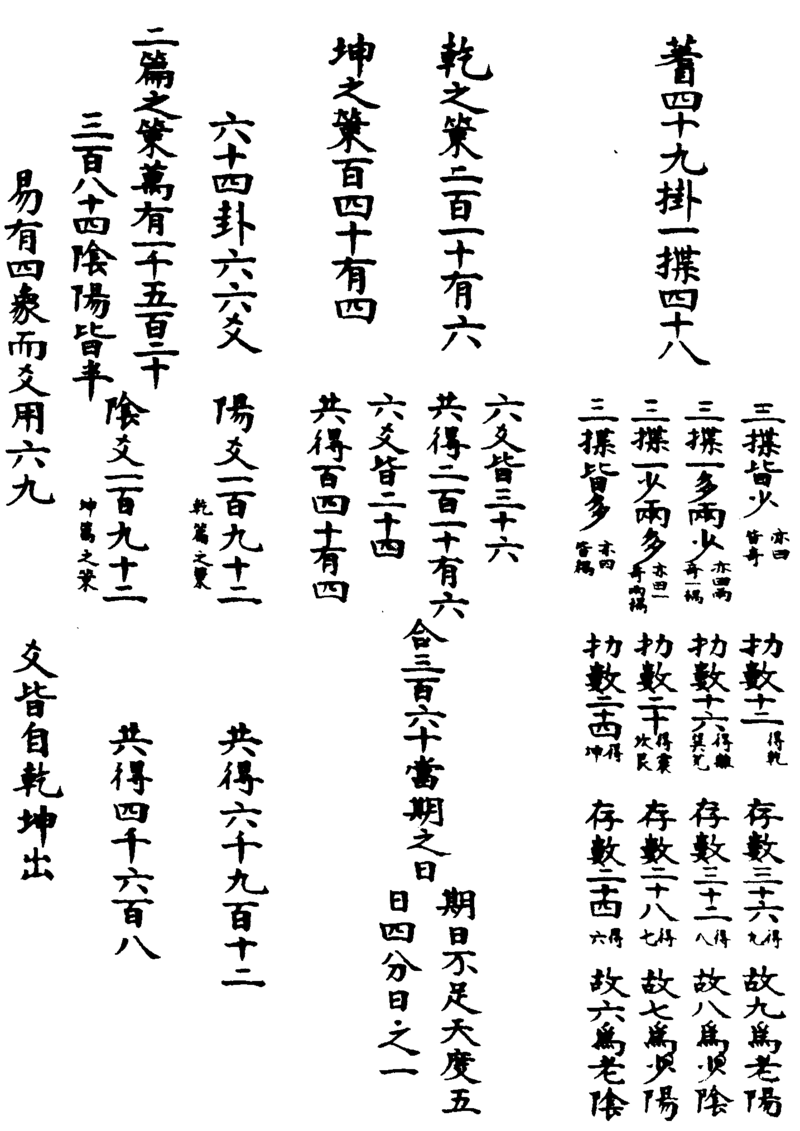 蓍四十九掛一揲四十八
三揲皆少 亦四皆奇 扐數十二 得乾 存數三十六 得九 故九爲老陽
三揲一多兩少 亦四兩奇一耦 扐數十六 得離巽兌 存數三十二 得八 故八爲少陰
三揲一少兩多 亦四一奇兩耦 扐數二十 得震坎艮 存數二十八 得七 故七爲少陽
三揲皆多 亦四皆耦 扐數二十四 得坤 存數二十四 得六 故六爲老陰
乾之策二百一十有六
六爻皆三十六
共得二百一十有六
坤之策百四十有四
六爻皆二十四
共得百四十有四
合三百六十當期之日
期日不足天度五
日四分日之一
六十四卦六六爻
陽爻一百九十二 乾篇之策
共得六千九百十二
二篇之策萬有一千五百二十
三百八十四陰陽皆半
陰爻一百九十二 坤篇之策
共得四千六百八
易有四象而爻用六九
爻皆自乾坤出